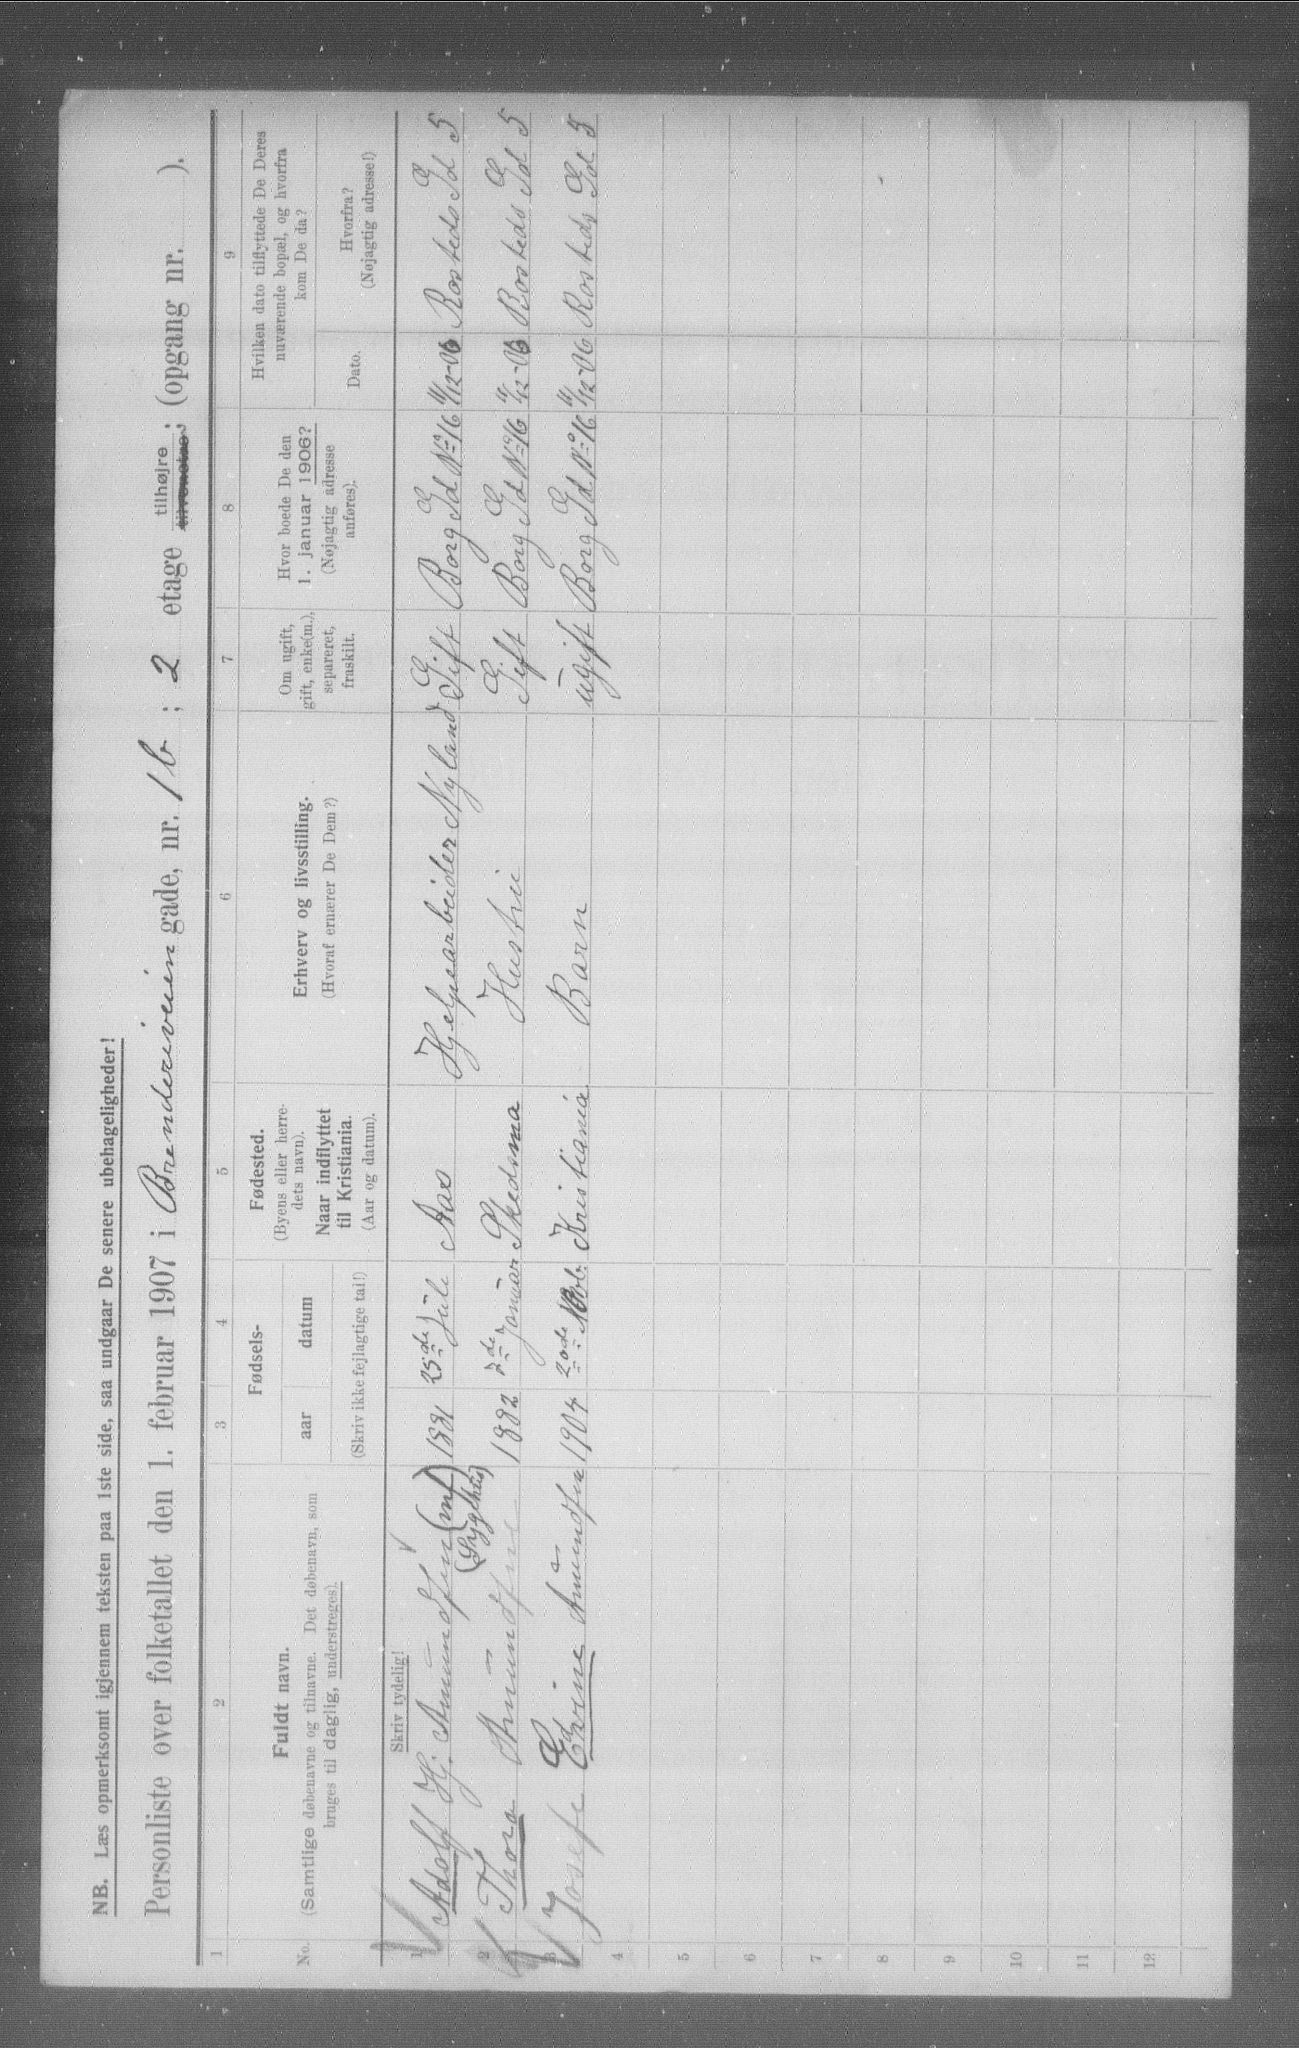 NB. Læs opmerksomt igjennem teksten paa 1ste side, saa undgaar De senere ubehageligheder!
Personliste over folketallet den 1. februar 1907 i Brenderiveien gade, nr. 1b ; 2 etage tilhøjre ; (opgang nr. ).
1 2 3 4 5 6 7 8 9
No.
Fuldt navn.
(Samtlige døbenavne og tilnavne. Det døbenavn, som
bruges til daglig, understreges).
Fødsels-
aar datum
(Skriv ikke fejlagtige tal!)
Fødested.
(Byens eller herre-
dets navn).
Naar indflyttet
til Kristiania.
(Aar og datum).
Erhverv og livsstilling.
(Hvoraf ernærer De Dem?)
Om ugift,
gift, enke(m.),
separeret,
fraskilt.
Hvor boede De den
1. januar 1906?
(Nøjagtig adresse
anføres).
Hvilken dato tilflyttede De Deres
nuværende bopæl, og hvorfra
kom De da?
Dato.
Hvorfra?
(Nøjagtig adresse!)
Skriv tydelig!
1 Adolf Hj. Amundsen (mf) 1881 25de Juli Aas Hjelpearbeider Nyland Gift Borg Gd No 16 11/12-06 Rosteds Gd 5
(Sygehus)
2 Thora Amundsen 1882 7de Januar Skedsmo Hustru Gift Borg Gd No 16 11/12-06 Rosteds Gd 5
3 Josefe Edvine Amundsen 1904 20de Kristiania Barn ugift Borg Gd No 16 11/12-06 Rosteds Gd 5
4
5
6
7
8
9
10
11
12